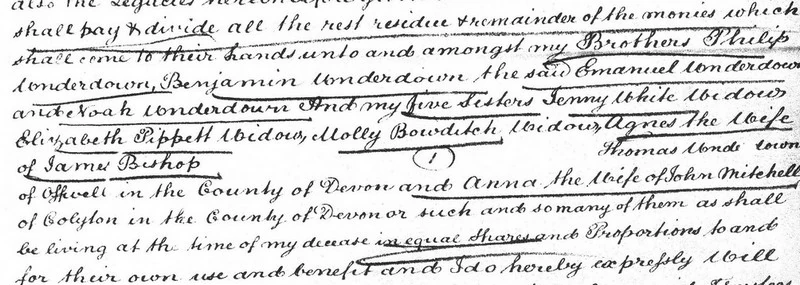 also the Legacies
shall pay & divide all the rest residue & remainder of the monies which
shall come to their hands unto and amongst my Brothers Philip
Underdown, Benjamin Underdown the said Emanuel Underdown
and Noah Underdown And my five Sisters Jenny White Widow
Elizabeth Pippett Widow, Molly Bowditch Widow, Agnes the Wife
of James Bishop
(1)
Thomas Unde down
of Offwell in the County of Devon and Anna the Wife of John Mitchell
of Colyton in the County of Devon or such and so many of them as shall
be living at the time of my decease in equal Shares and Proportions to and
for their own use and benefit and I do hereby expressly Will